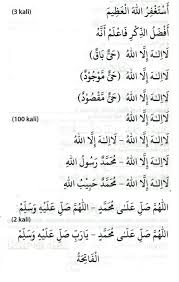 (3 kali) أَسْتَغْفِرُ اللهَ الْعَظِيْمَ
أَفْضَلُ الذِّكْرِ فَاعْلَمْ أَنَّهُ
لَاإِلٰهَ إِلَّا اللهُ (حَيٌّ بَاقٍ)
لَاإِلٰهَ إِلَّا اللهُ (حَيٌّ مَوْجُوْدٌ)
لَاإِلٰهَ إِلَّا اللهُ (حَيٌّ مَقْصُوْدٌ)
(100 kali) لَاإِلٰهَ إِلَّا اللهُ - لَاإِلٰهَ إِلَّا اللهُ
لَاإِلٰهَ إِلَّا اللهُ - مُحَمَّدٌ رَسُوْلُ اللهِ
لَاإِلٰهَ إِلَّا اللهُ - مُحَمَّدٌ حَبِيْبُ اللهِ
اللّٰهُمَّ صَلِّ عَلَىٰ مُحَمَّدٍ - اللّٰهُمَّ صَلِّ عَلَيْهِ وَسَلِّمْ
(2 kali)
اللّٰهُمَّ صَلِّ عَلَىٰ مُحَمَّدٍ - يَارَبِّ صَلِّ عَلَيْهِ وَسَلِّمْ
الْفَاتِحَةُ